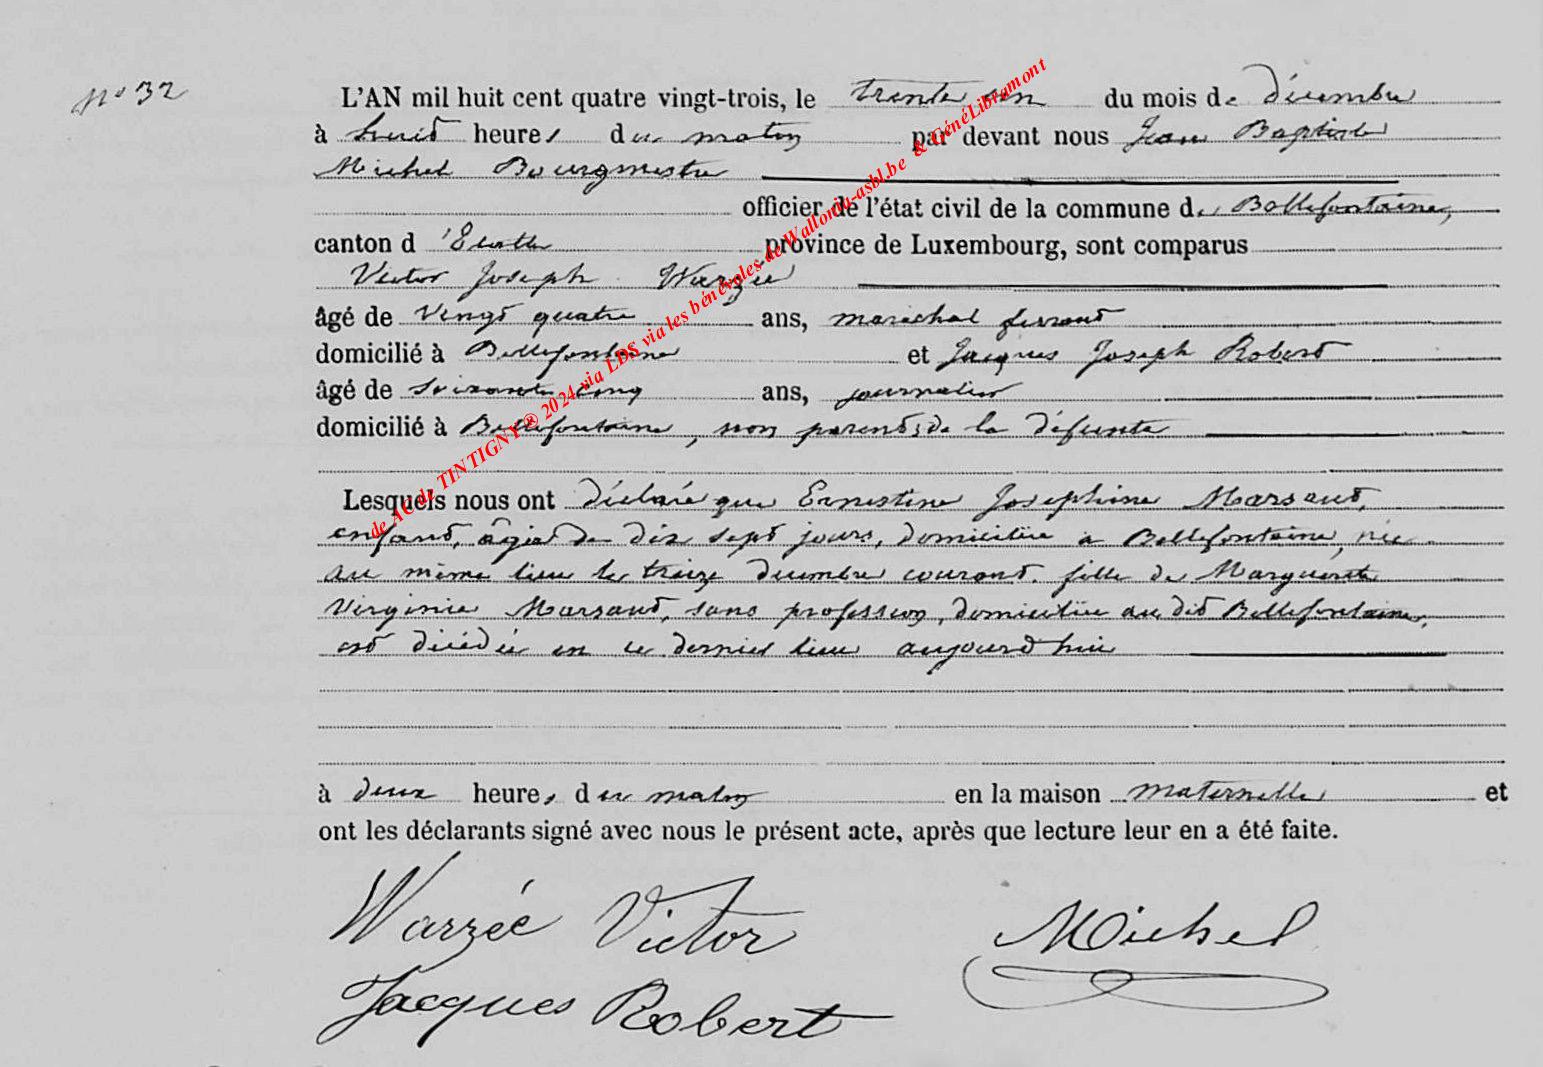 N° 32
L'AN mil huit cent quatre vingt-trois, le trente un du mois de décembre
à huit heures du matin par devant nous Jean Baptiste
Michel Bourgmestre
officier de l'état civil de la commune de Bellefontaine,
canton d'Etalle province de Luxembourg, sont comparus
Victor Joseph Warzée
âgé de vingt quatre ans, maréchal ferrant
domicilié à Bellefontaine et Jacques Joseph Robert
âgé de soixante cinq ans, journalier
domicilié à Bellefontaine, non parents de la défunte
Lesquels nous ont déclaré que Ernestine Josephine Marsaut,
enfant, âgée de dix sept jours, domiciliée à Bellefontaine, née
au même lieu le treize décembre courant. fille de Marguerite
Virginie Marsaut, sans profession, domiciliée au dit Bellefontaine,
est décédée en ce dernier lieu aujourd'hui
à deux heures du matin en la maison maternelle et
ont les déclarants signé avec nous le présent acte, après que lecture leur en a été faite.
Warzée Victor
Michel
Jacques Robert
de AC de TINTIGNY® 2024 via LDS via les bénévoles de Wallonia-asbl.be & GénéLibramont